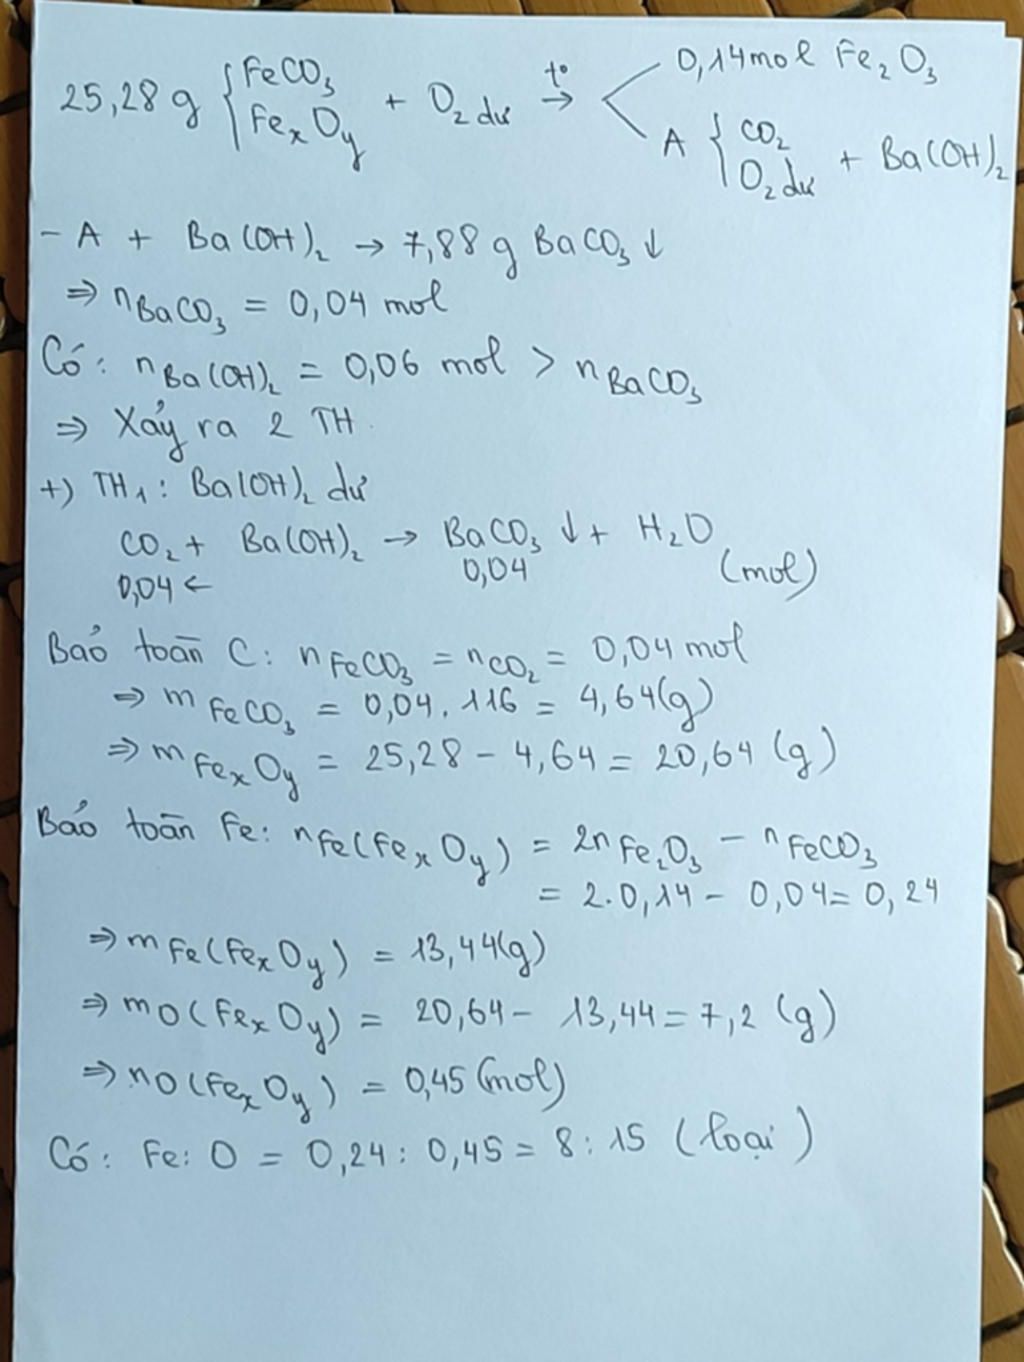 25,28 g { FeCO₃ FeₓOᵧ + O₂ dư →t° < 0,14 mol Fe₂O₃
A { CO₂ O₂ dư + Ba(OH)₂
- A + Ba(OH)₂ → 7,88 g BaCO₃ ↓
⇒ nBaCO₃ = 0,04 mol
Có: nBa(OH)₂ = 0,06 mol > nBaCO₃
⇒ Xảy ra 2 TH.
+) TH₁: Ba(OH)₂ dư
CO₂ + Ba(OH)₂ → BaCO₃ ↓ + H₂O
0,04 ← 0,04 (mol)
Bảo toàn C: nFeCO₃ = nCO₂ = 0,04 mol
⇒ mFeCO₃ = 0,04 . 116 = 4,64(g)
⇒ mFeₓOᵧ = 25,28 - 4,64 = 20,64 (g)
Bảo toàn Fe: nFe(FeₓOᵧ) = 2nFe₂O₃ - nFeCO₃
= 2.0,14 - 0,04 = 0,24
⇒ mFe(FeₓOᵧ) = 13,44(g)
⇒ mO(FeₓOᵧ) = 20,64 - 13,44 = 7,2 (g)
⇒ nO(FeₓOᵧ) = 0,45 (mol)
Có: Fe: O = 0,24 : 0,45 = 8 : 15 (loại)